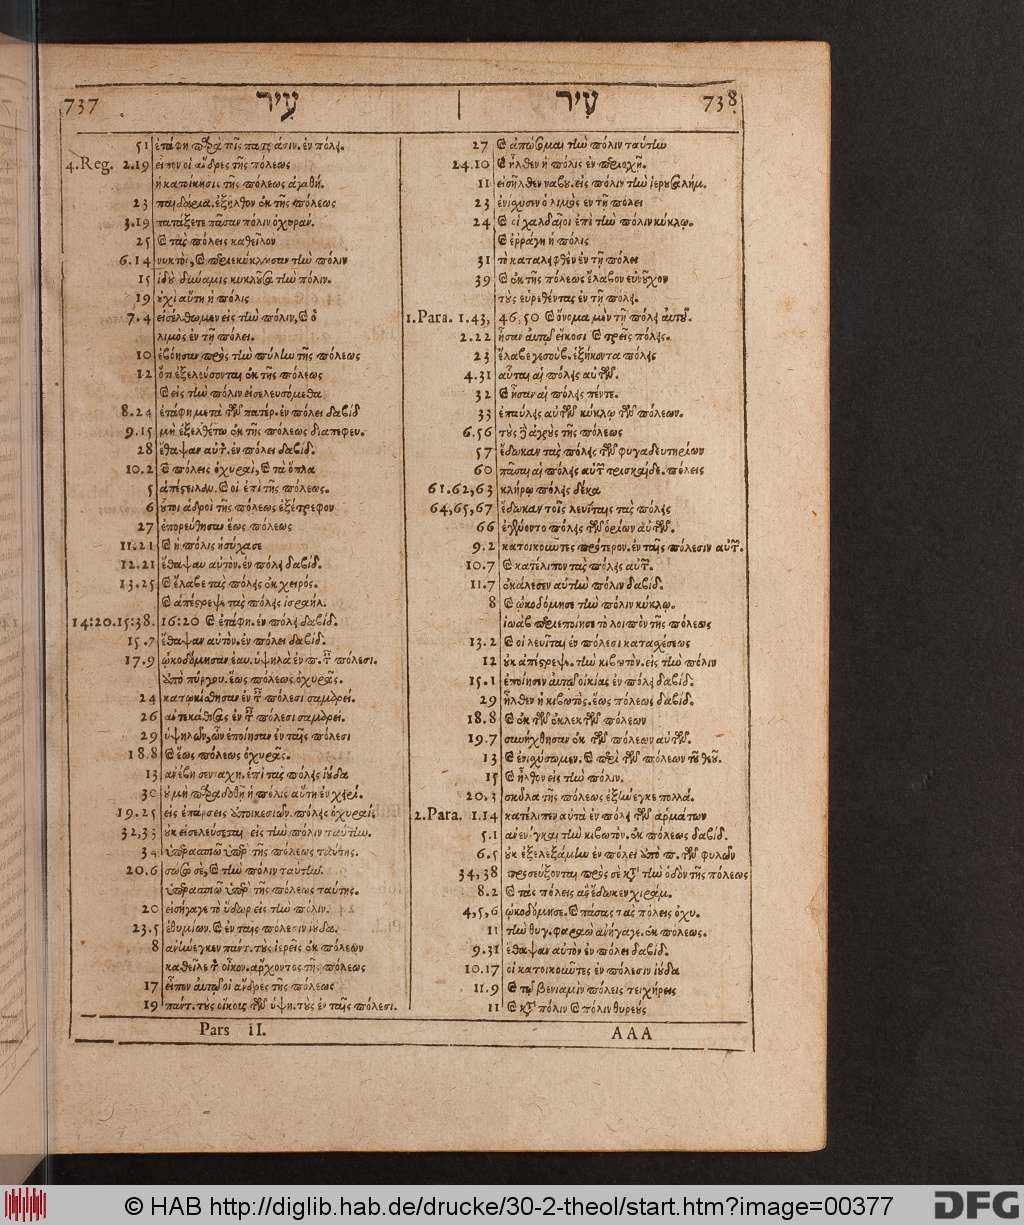 737 עִיר
עִיר 738
51 ἐτάφη παρὰ τοῖς πατράσιν. ἐν πόλει.
4. Reg. 2.19 εἶπον οἱ ἄνδρες τῆς πόλεως
ἡ κατοίκησις τῆς πόλεως ἀγαθή.
23 παιδάρια. ἐξῆλθον ἐκ τῆς πόλεως
3.19 πατάξετε πᾶσαν πόλιν ὀχυράν.
25 καὶ τὰς πόλεις καθεῖλον
6.14 νυκτὸς, καὶ περιεκύκλωσαν τὴν πόλιν
15 ἰδοὺ δύναμις κυκλοῦσα τὴν πόλιν.
19 οὐχὶ αὕτη ἡ πόλις
7.4 εἰσέλθωμεν εἰς τὴν πόλιν, καὶ ὁ
λιμὸς ἐν τῇ πόλει.
10 ἐβόησαν πρὸς τὴν πύλην τῆς πόλεως
12 ὅτι ἐξελεύσονται ἐκ τῆς πόλεως
καὶ εἰς τὴν πόλιν εἰσελευσόμεθα
8.24 ἐτάφη μετὰ τῶν πατέρ. ἐν πόλει δαβὶδ
9.15 μὴ ἐξελθέτω ἐκ τῆς πόλεως διαπεφευ.
28 ἔθαψαν αὐτ. ἐν πόλει δαβίδ.
10.2 καὶ πόλεις ὀχυραὶ, καὶ τὰ ὅπλα
5 ἀπέστειλαν. καὶ οἱ ἐπὶ τῆς πόλεως.
6 οὗτοι ἁδροὶ τῆς πόλεως ἐξέτρεφον
27 ἐπορεύθησαν ἕως πόλεως
11.21 καὶ ἡ πόλις ἡσύχασε
12.21 ἔθαψαν αὐτὸν. ἐν πόλει δαβίδ.
13.25 καὶ ἔλαβε τὰς πόλεις ἐκ χειρός.
καὶ ἀπέστρεψε τὰς πόλεις ἰσραήλ.
14:20. 15:38. 16:20 καὶ ἐτάφη. ἐν πόλει δαβίδ.
15.7 ἔθαψαν αὐτὸν. ἐν πόλει δαβίδ.
17.9 ᾠκοδόμησαν ἑαυ. ὑψηλὰ ἐν π. τ. πόλεσι.
ἀπὸ πύργου. ἕως πόλεως ὀχυρᾶς.
24 κατῳκίσθησαν ἐν τ. πόλεσι σαμάρει.
26 ἀντεκάθισας ἐν τ. πόλεσι σαμάρει.
29 ὑψηλῶν, ὧν ἐποίησαν ἐν ταῖς πόλεσι
18.8 καὶ ἕως πόλεως ὀχυρᾶς.
13 ἀνέβη σεναχη. ἐπὶ τὰς πόλεις ἰούδα
30 οὐ μὴ παραδοθῇ ἡ πόλις αὕτη ἐν χειρί.
19.25 εἰς ἐπάρσεις ἀποικεσιῶν. πόλεις ὀχυραί.
32,33 οὐκ εἰσελεύσεται εἰς τὴν πόλιν ταύτην.
34 ὑπερασπιῶ ὑπὲρ τῆς πόλεως ταύτης.
20.6 σώσω σὲ, καὶ τὴν πόλιν ταύτην.
ὑπερασπιῶ ὑπὲρ τῆς πόλεως ταύτης.
20 εἰσήγαγε τὸ ὕδωρ εἰς τὴν πόλιν.
23.5 ἐθυμίων. καὶ ἐν ταῖς πόλεσιν ἰούδα.
8 ἀνήνεγκεν πάντ. τοὺς ἱερεῖς ἐκ πόλεων
καθεῖλε τ. οἶκον. ἄρχοντος τῆς πόλεως
17 εἶπον αὐτῷ οἱ ἄνδρες τῆς πόλεως
19 πάντ. τοὺς οἴκους τῶν ὑψη. τοὺς ἐν ταῖς πόλεσι.
Pars II.
27 καὶ ἀπώσομαι τὴν πόλιν ταύτην
24.10 καὶ ἦλθεν ἡ πόλις ἐν περιοχῇ.
11 εἰσῆλθεν ναβου. εἰς πόλιν τὴν ἱερουσαλήμ.
23 ἐνίσχυσεν ὁ λιμὸς ἐν τῇ πόλει
24 καὶ οἱ χαλδαῖοι ἐπὶ τὴν πόλιν κύκλῳ.
καὶ ἐρράγη ἡ πόλις
31 τὸ καταλειφθὲν ἐν τῇ πόλει
39 καὶ ἐκ τῆς πόλεως ἔλαβον εὐνοῦχον
τοὺς εὑρεθέντας ἐν τῇ πόλει.
1. Para. 1.43, 46, 50 καὶ ὄνομα μὲν τῇ πόλει αὐτοῦ.
2.22 ἦσαν αὐτῷ εἴκοσι καὶ τρεῖς πόλεις.
23 ἔλαβε γεσοὺβ. ἑξήκοντα πόλεις
4.31 αὗται αἱ πόλεις αὐτῶν.
32 καὶ ἦσαν αἱ πόλεις πέντε.
33 ἐπαύλεις αὐτῶν κύκλῳ τῶν πόλεων.
6.56 τοὺς ἀγροὺς τῆς πόλεως
57 ἔδωκαν τὰς πόλεις τῶν φυγαδευτηρίων
60 πᾶσαι αἱ πόλεις αὐτῶν τρισκαίδε. πόλεις
61. 62, 63 κλήρῳ πόλεις δέκα
64, 65, 67 ἔδωκαν τοῖς λευίταις τὰς πόλεις
66 ἐγένοντο πόλεις τῶν ὁρίων αὐτῶν.
9.2 κατοικοῦντες πρότερον. ἐν ταῖς πόλεσιν αὐτῶν.
10.7 καὶ κατέλιπον τὰς πόλεις αὐτῶν.
11.7 ἐκάλεσεν αὐτὴν πόλιν δαβίδ.
8 καὶ ᾠκοδόμησε τὴν πόλιν κύκλῳ.
ἰωὰβ περιεποίησε τὸ λοιπὸν τῆς πόλεως
13.2 καὶ οἱ λευῖται ἐν πόλεσι κατασχέσεως
12 οὐκ ἀπέστρεψε. τὴν κιβωτὸν. εἰς τὴν πόλιν
15.1 ἐποίησεν αὐτῷ οἰκίας ἐν πόλει δαβίδ.
29 ἦλθεν ἡ κιβωτὸς. ἕως πόλεως δαβίδ.
18.8 καὶ ἐκ τῶν ἐκλεκτῶν πόλεων
19.7 συνήχθησαν ἐκ τῶν πόλεων αὐτῶν.
13 καὶ ἐνισχύσωμεν. καὶ περὶ τῶν πόλεων τοῦ θεοῦ.
15 καὶ ἦλθον εἰς τὴν πόλιν.
20.3 σκῦλα τῆς πόλεως ἐξήνεγκε πολλά.
2. Para. 1.14 κατέλιπεν αὐτὰ ἐν πόλει τῶν ἁρμάτων
5.1 ἀνενέγκαι τὴν κιβωτὸν. ἐκ πόλεως δαβίδ.
6.5 οὐκ ἐξελεξάμην ἐν πόλει ἀπὸ π. τῶν φυλῶν
34, 38 προσεύξονται πρὸς σὲ κατὰ τὴν ὁδὸν τῆς πόλεως
8.2 καὶ τὰς πόλεις ἃς ἔδωκεν χιράμ.
4, 5, 6 ᾠκοδόμησε. καὶ πάσας τὰς πόλεις ὀχυ.
11 τὴν θυγ. φαραὼ ἀνήγαγε. ἐκ πόλεως.
9.31 ἔθαψαν αὐτὸν ἐν πόλει δαβίδ.
10.17 οἱ κατοικοῦντες ἐν πόλεσιν ἰούδα
11.9 καὶ τῷ βενιαμὶν πόλεις τειχήρεις
11 καὶ κατὰ πόλιν καὶ πόλιν θυρεοὺς
AAA
© HAB http://diglib.hab.de/drucke/30-2-theol/start.htm?image=00377
DFG